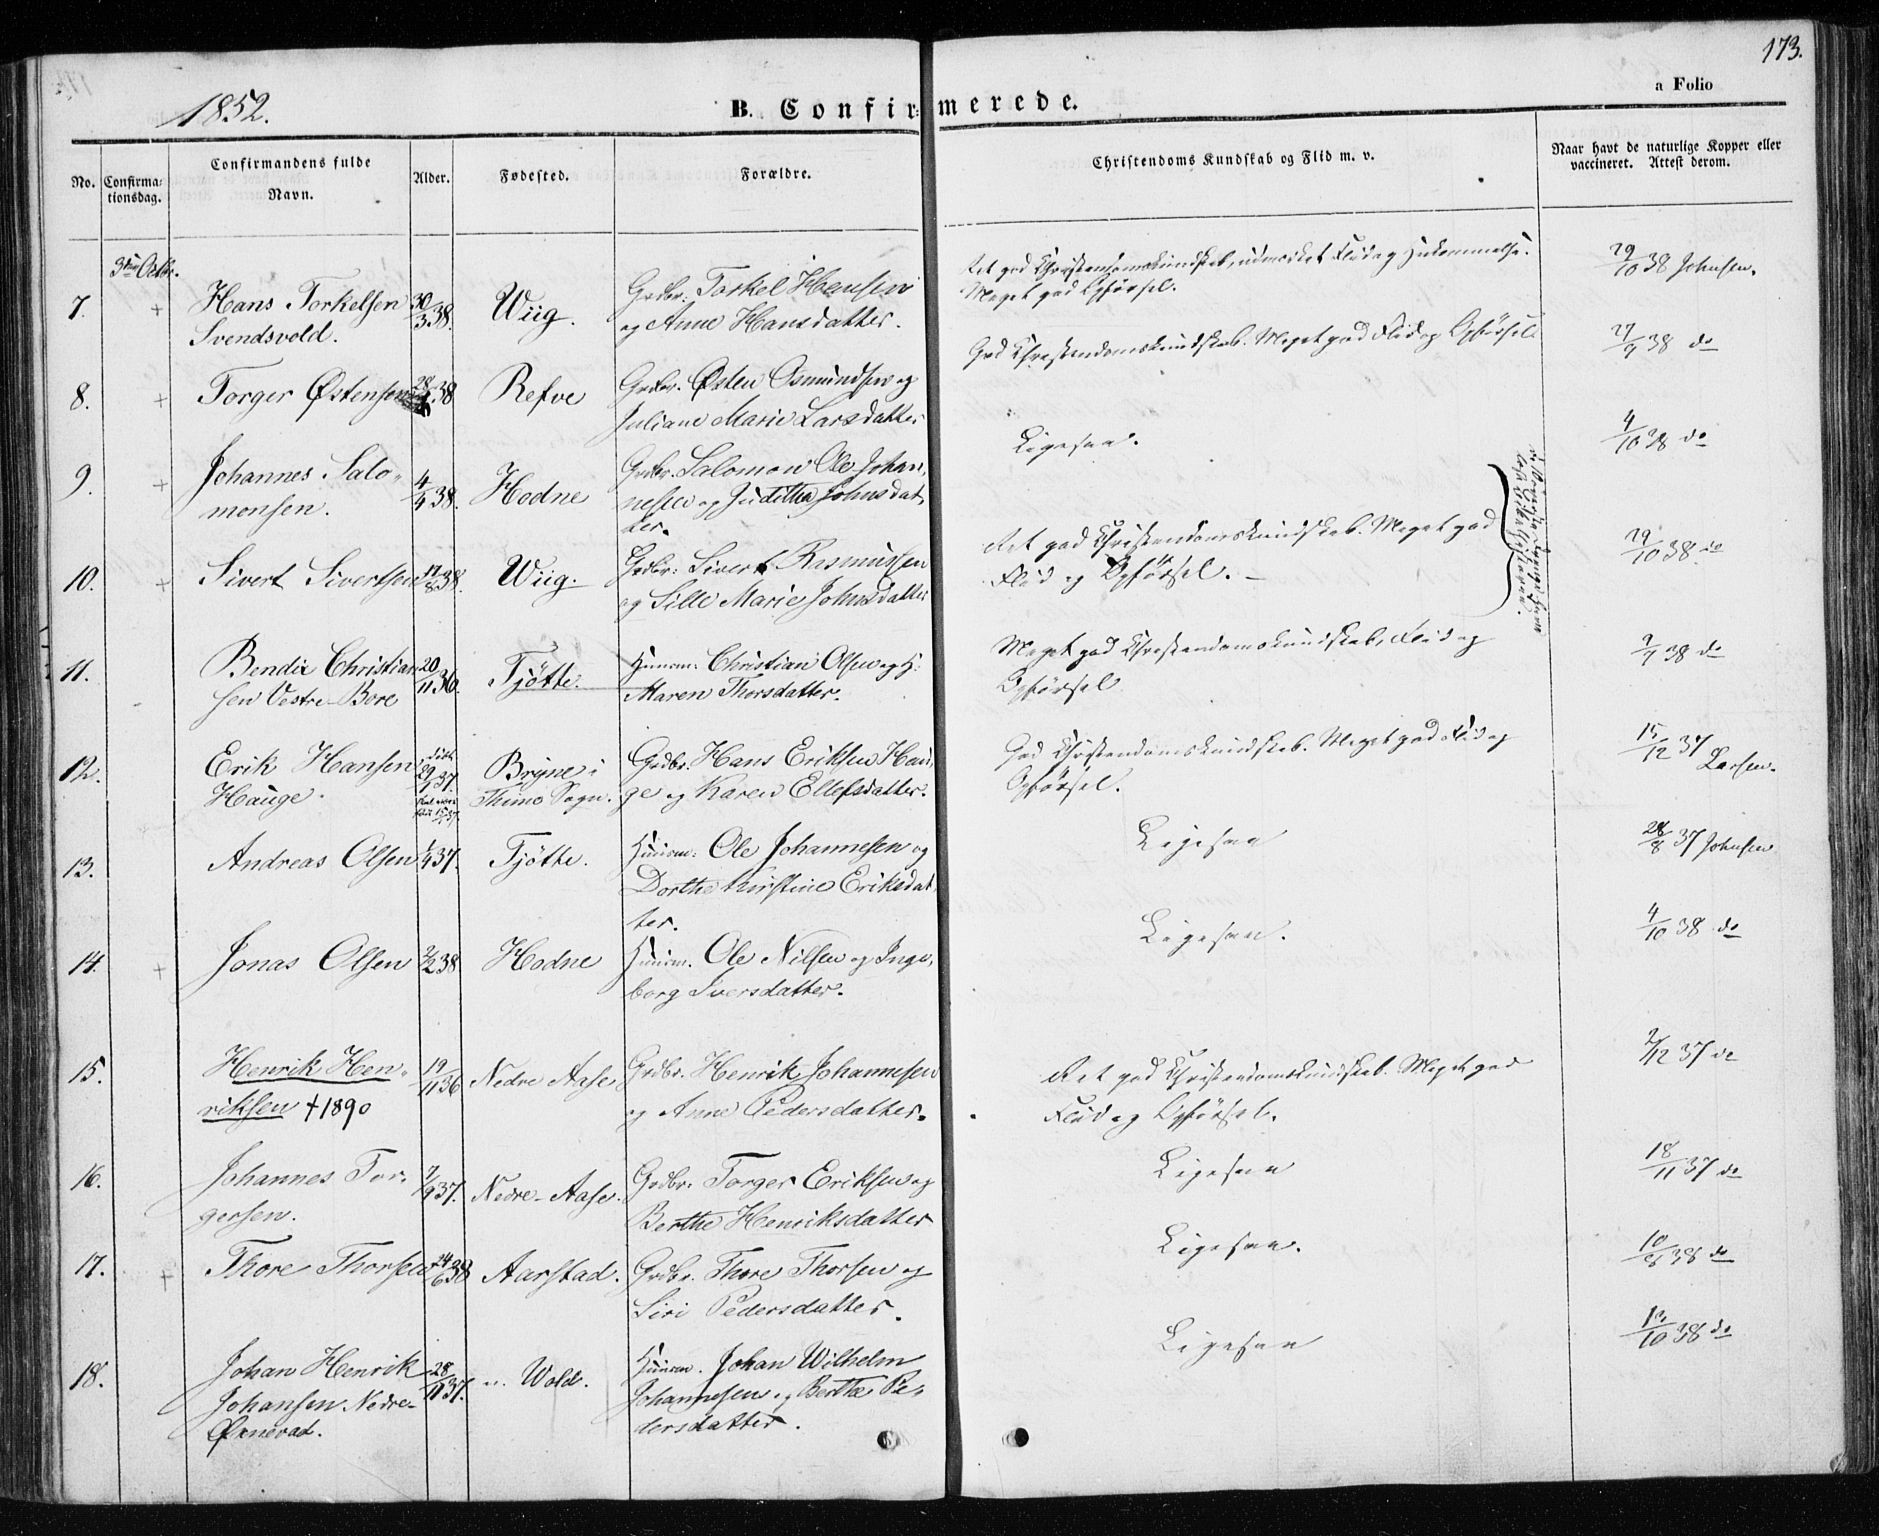 173.
1852.
B. Confirmerede.
a Folio
No.
Confirma-
tionsdag.
Confirmandens fulde
Navn.
Alder.
Fødested.
Forældre.
Christendoms Kundskab og Flid m. v.
Naar havt de naturlige Kopper eller
vaccineret. Attest derom.
3die Octbr.
7. + Hans Torkelsen 30/3 38. Wiig. Grdbr. Torkel Hansen
Svendsvold. og Anne Hansdatter.
Ret god Christendomskundskab, udmærket Flid og Hukommelse.
Meget god Opførsel.
29/10 38 Johnsen.
8. + Torger Østensen 28/ 38 Refve Grdbr. Østen Osmundsen og
Juliane Marie Larsdatter
God Christendomskundskab. Meget god Flid og Opførsel.
27/9 38 do
9. + Johannes Salo- 4/4 38. Hodne Grdbr. Salomon Ole Johan-
monsen. nesen og Juditha Johnsdat-
ter.
Ligesaa.
4/10 38 do
10. + Sivert Sivertsen 17/8 38. Wiig. Grdbr. Sivert Rasmussen
og Sille Marie Johnsdatter
Ret god Christendomskundskab. Meget god
Flid og Opførsel. —
29/10 38 do
11. Bendix Christian 20/11 36. Tjøtte. Huusm. Christian Olsen og H.
sen Vestre-Bore Maren Thorsdatter.
Meget god Christendomskundskab, Flid og
Opførsel
9/9 38 do
12. Erik Hansen født 29/9 37. Bryne i Grdbr. Hans Eriksen Hau-
Hauge. Thime Sogn. ge og Karen Ellefsdatter.
God Christendomskundskab. Meget god Flid og
Opførsel.
15/12 37 Larsen.
13. Andreas Olsen 1/4 37. Tjøtte. Huusm. Ole Johannesen og
Dorthe Kirstine Eriksdat-
ter.
Ligesaa
28/8 37 Johnsen
14. + Jonas Olsen 2/2 38 Hodne Huusm. Ole Nilsen og Inge-
borg Iversdatter.
Ligesaa.
4/10 38 do
15. Henrik Hen- 19/11 36 Nedre Aase Grdbr. Henrik Johannesen
riksen † 1890 og Anne Pedersdatter.
Ret god Christendomskundskab. Meget god
Flid og Opførsel.
2/12 37 do
16. Johannes Tor- 7/9 37. Nedre-Aase. Grdbr. Torger Eriksen og
gersen. Berthe Henriksdatter
Ligesaa
18/11 37 do
17. + Thore Thorsen 24/6 38 Aarstad. Grdbr. Thore Thorsen og
Siri Pedersdatter.
Ligesaa.
10/8 38 do
18. Johan Henrik 28/11 37. n. Wold. Huusm. Johan Wilhelm
Johansen Nedre- Johannesen og Berthe Pe-
Ørnevad. dersdatter.
Ligesaa
13/10 38 do